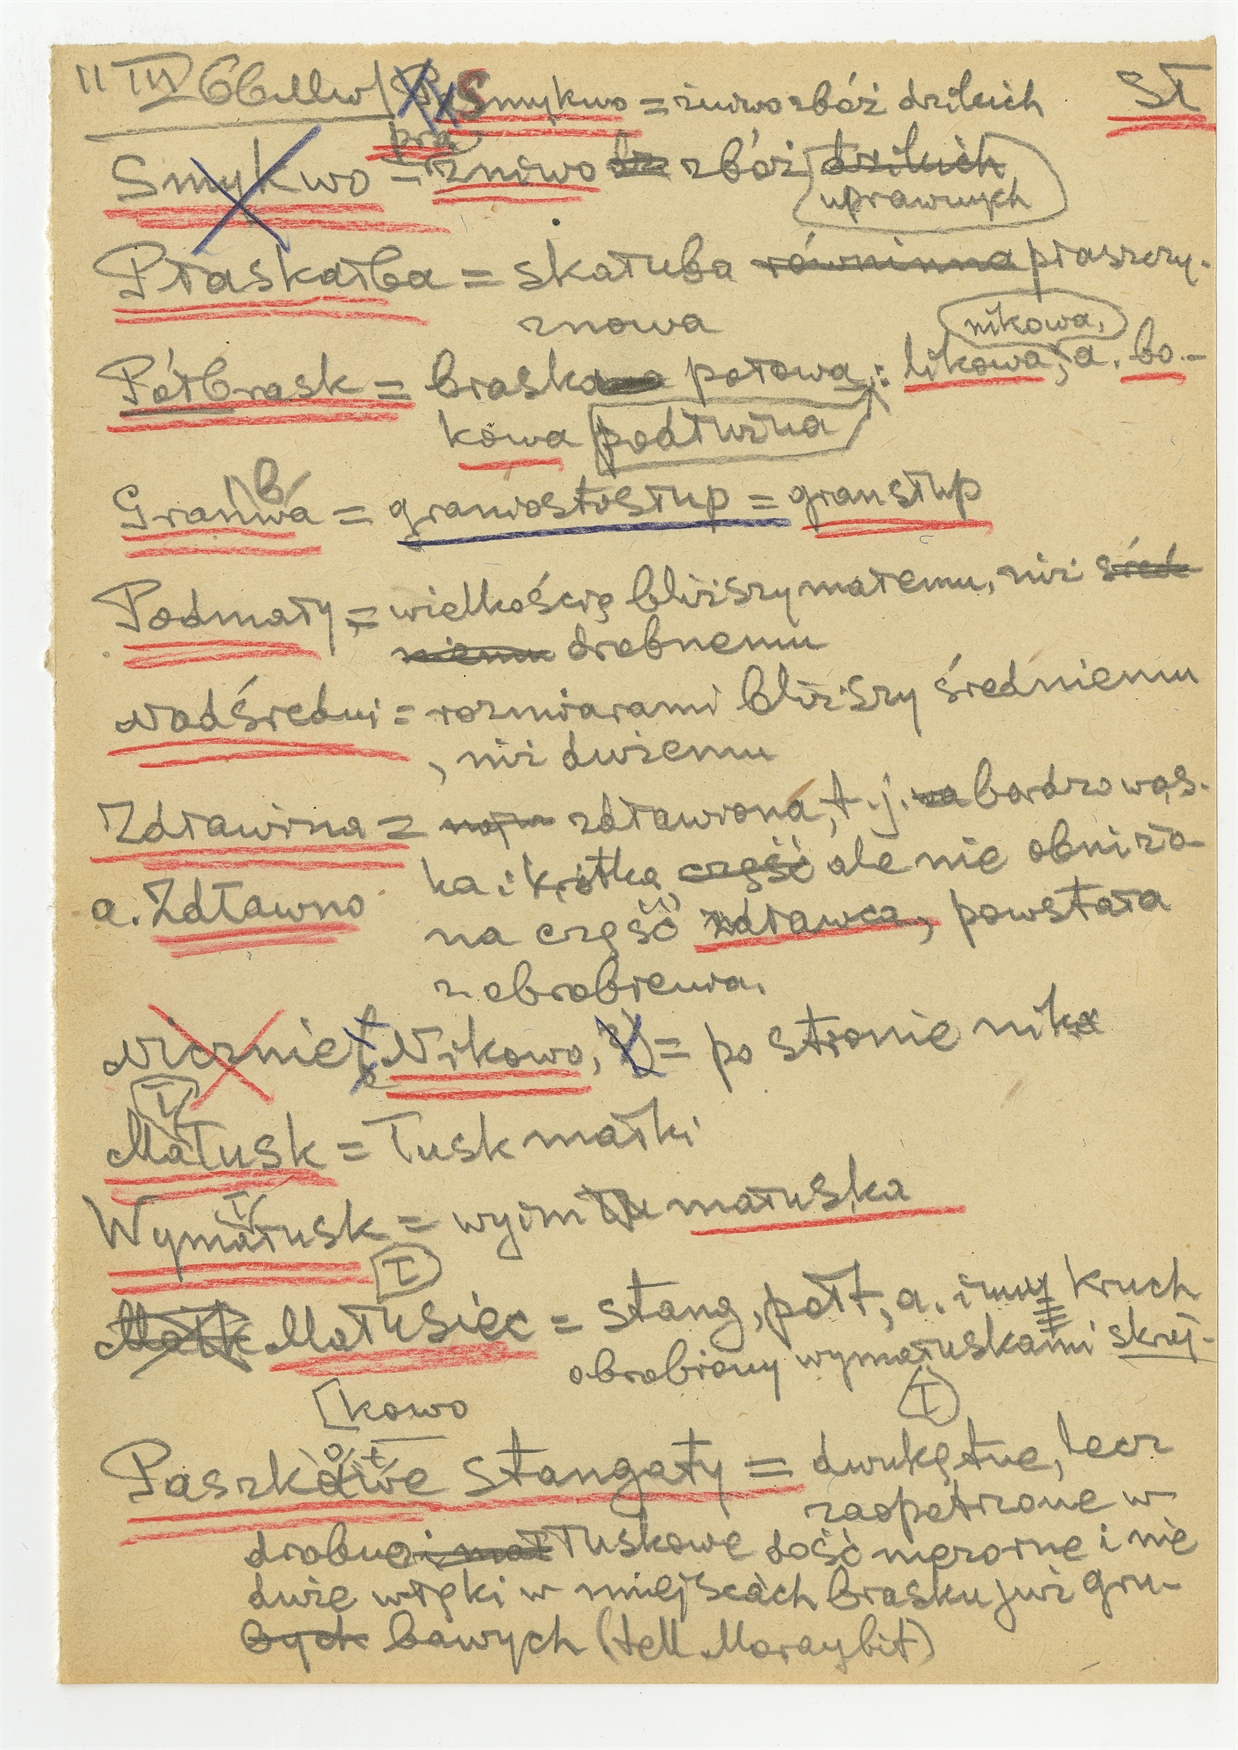 11 III 66 Mw Smykwo = żniwo zbóż dzikich SŁ
pra
Smykwo = żniwo zbóż dzikich
uprawnych
Płaskałba = skałuba równinna płaszczy-
znowa
nikowa,
Półbrask = braska połowa: likowa, a. bo-
kowa podłużna
b
Grańwa = graniostosłup = gransłup
Podmały = wielkością bliższy małemu, niż śred
niemu drobnemu
Nadśredni = rozmiarami bliższy średniemu
, niż dużemu
Zdławina = zdławiona, t.j. bardzo wąs-
ka i krótka, część ale nie obniżo-
a. Zdławno
na część zdławca, powstała
z obrobienia.
Nicznie Nikowo, = po stronie nika
Ł
Małusk = łusk małki
Ł
Wymałusk = wyimek małuska
Ł
Małk Małusiec = stang, połt, a. inny kruch
obrobiony wymałuskami skraj-
Ł
kowo
Paszkowe stangaty = dwukętne, lecz
zaopatrzone w
drobno i mał łuskowe dość niezorne i nie
duże wnęki w miejscach brasku już gru-
bych bawych (tell Moraybit)